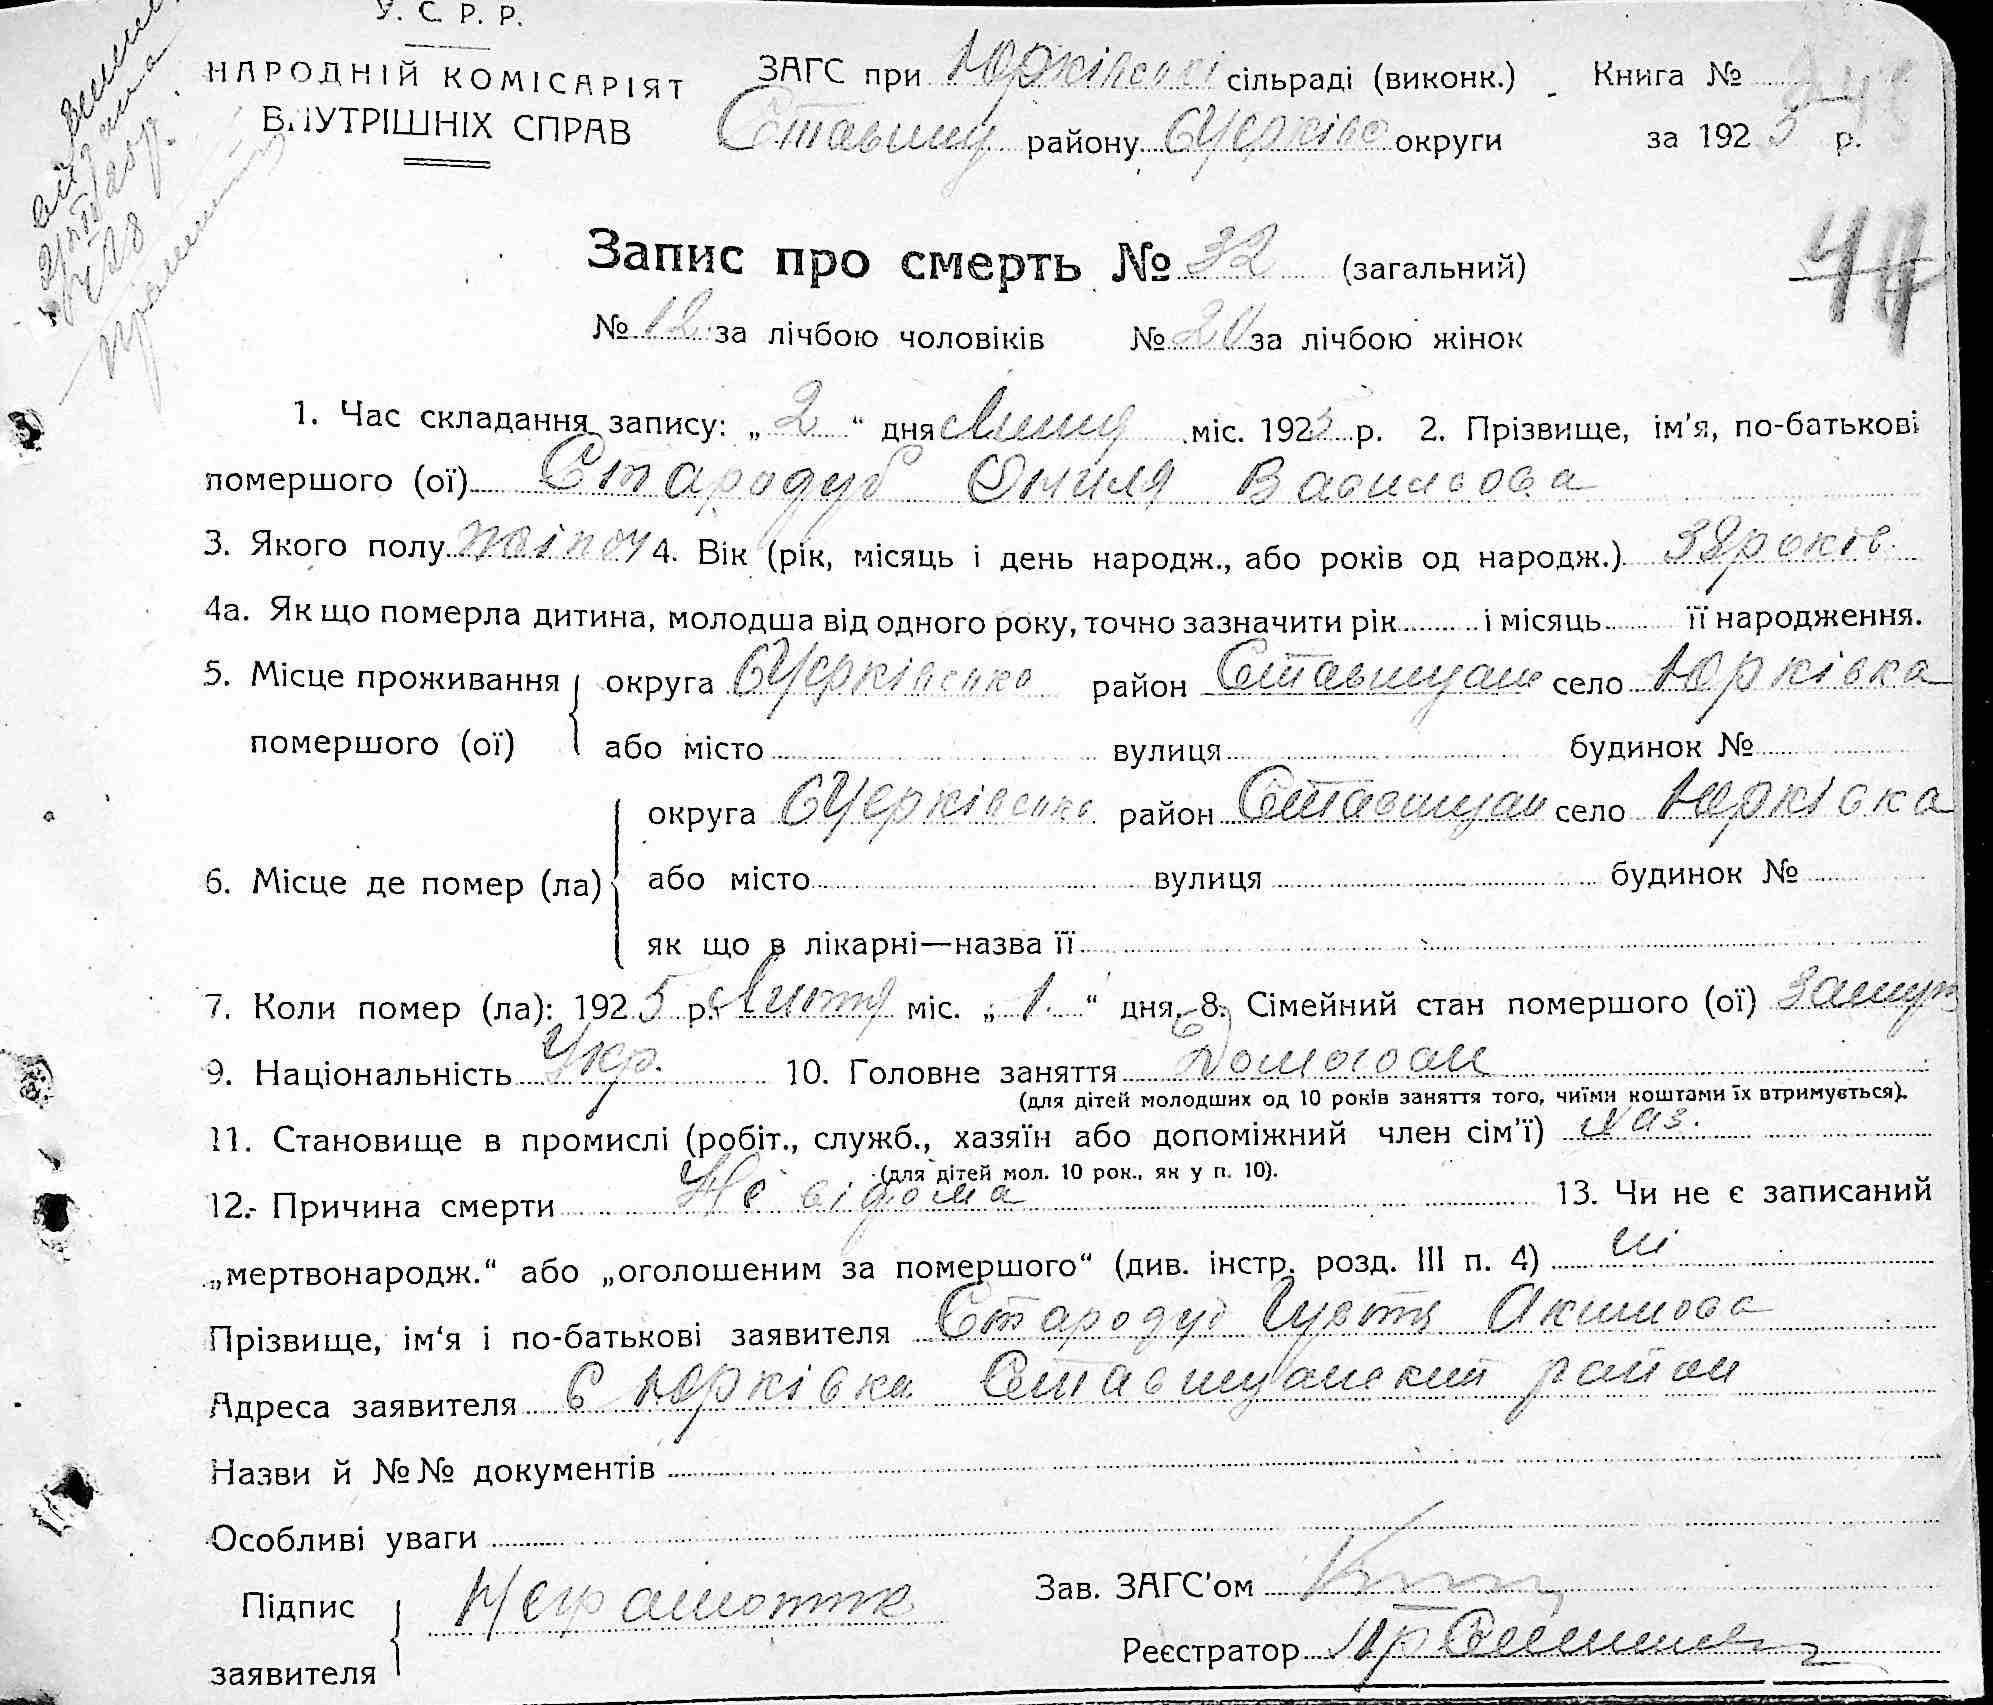 У. С. Р. Р.
НАРОДНІЙ КОМІСАРІЯТ
ВНУТРІШНІХ СПРАВ
ЗАГС при Юрківські сільраді (виконк.) Книга №
Ставищ району БЧерківс округи за 1925 р.
Запис про смерть № 32 (загальний)
44
№ 12 за лічбою чоловіків № 20 за лічбою жінок
1. Час складання запису: „ 2 “ дня міс. 1925 р. 2. Прізвище, ім'я, по-батькові
помершого (ої) Стародуб Ониля Васильова
3. Якого полу жіноч 4. Вік (рік, місяць і день народж., або років од народж.) 38 років
4а. Як що померла дитина, молодша від одного року, точно зазначити рік і місяць її народження.
5. Місце проживання помершого (ої) округа БЧерківсько район Ставищан село Юрківка
або місто вулиця будинок №
6. Місце де помер (ла) округа БЧерківсько район Ставищан село Юрківка
або місто вулиця будинок №
як що в лікарні—назва її
7. Коли помер (ла): 1925 р. міс. „ 1 “ дня. 8. Сімейний стан помершого (ої) замуж
9. Національність Укр. 10. Головне заняття Домогос
(для дітей молодших од 10 років заняття того, чиїми коштами їх втримується).
11. Становище в промислі (робіт., служб., хазяїн або допоміжний член сім'ї) хаз.
(для дітей мол. 10 рок., як у п. 10).
12. Причина смерти Не відома 13. Чи не є записаний
„мертвонародж.“ або „оголошеним за помершого“ (див. інстр. розд. III п. 4) ні
Прізвище, ім'я і по-батькові заявителя Стародуб Акимова
Адреса заявителя с Юрківка Ставищанский район
Назви й №№ документів
Особливі уваги
Підпис заявителя Неграмотна
Зав. ЗАГС'ом
Реєстратор